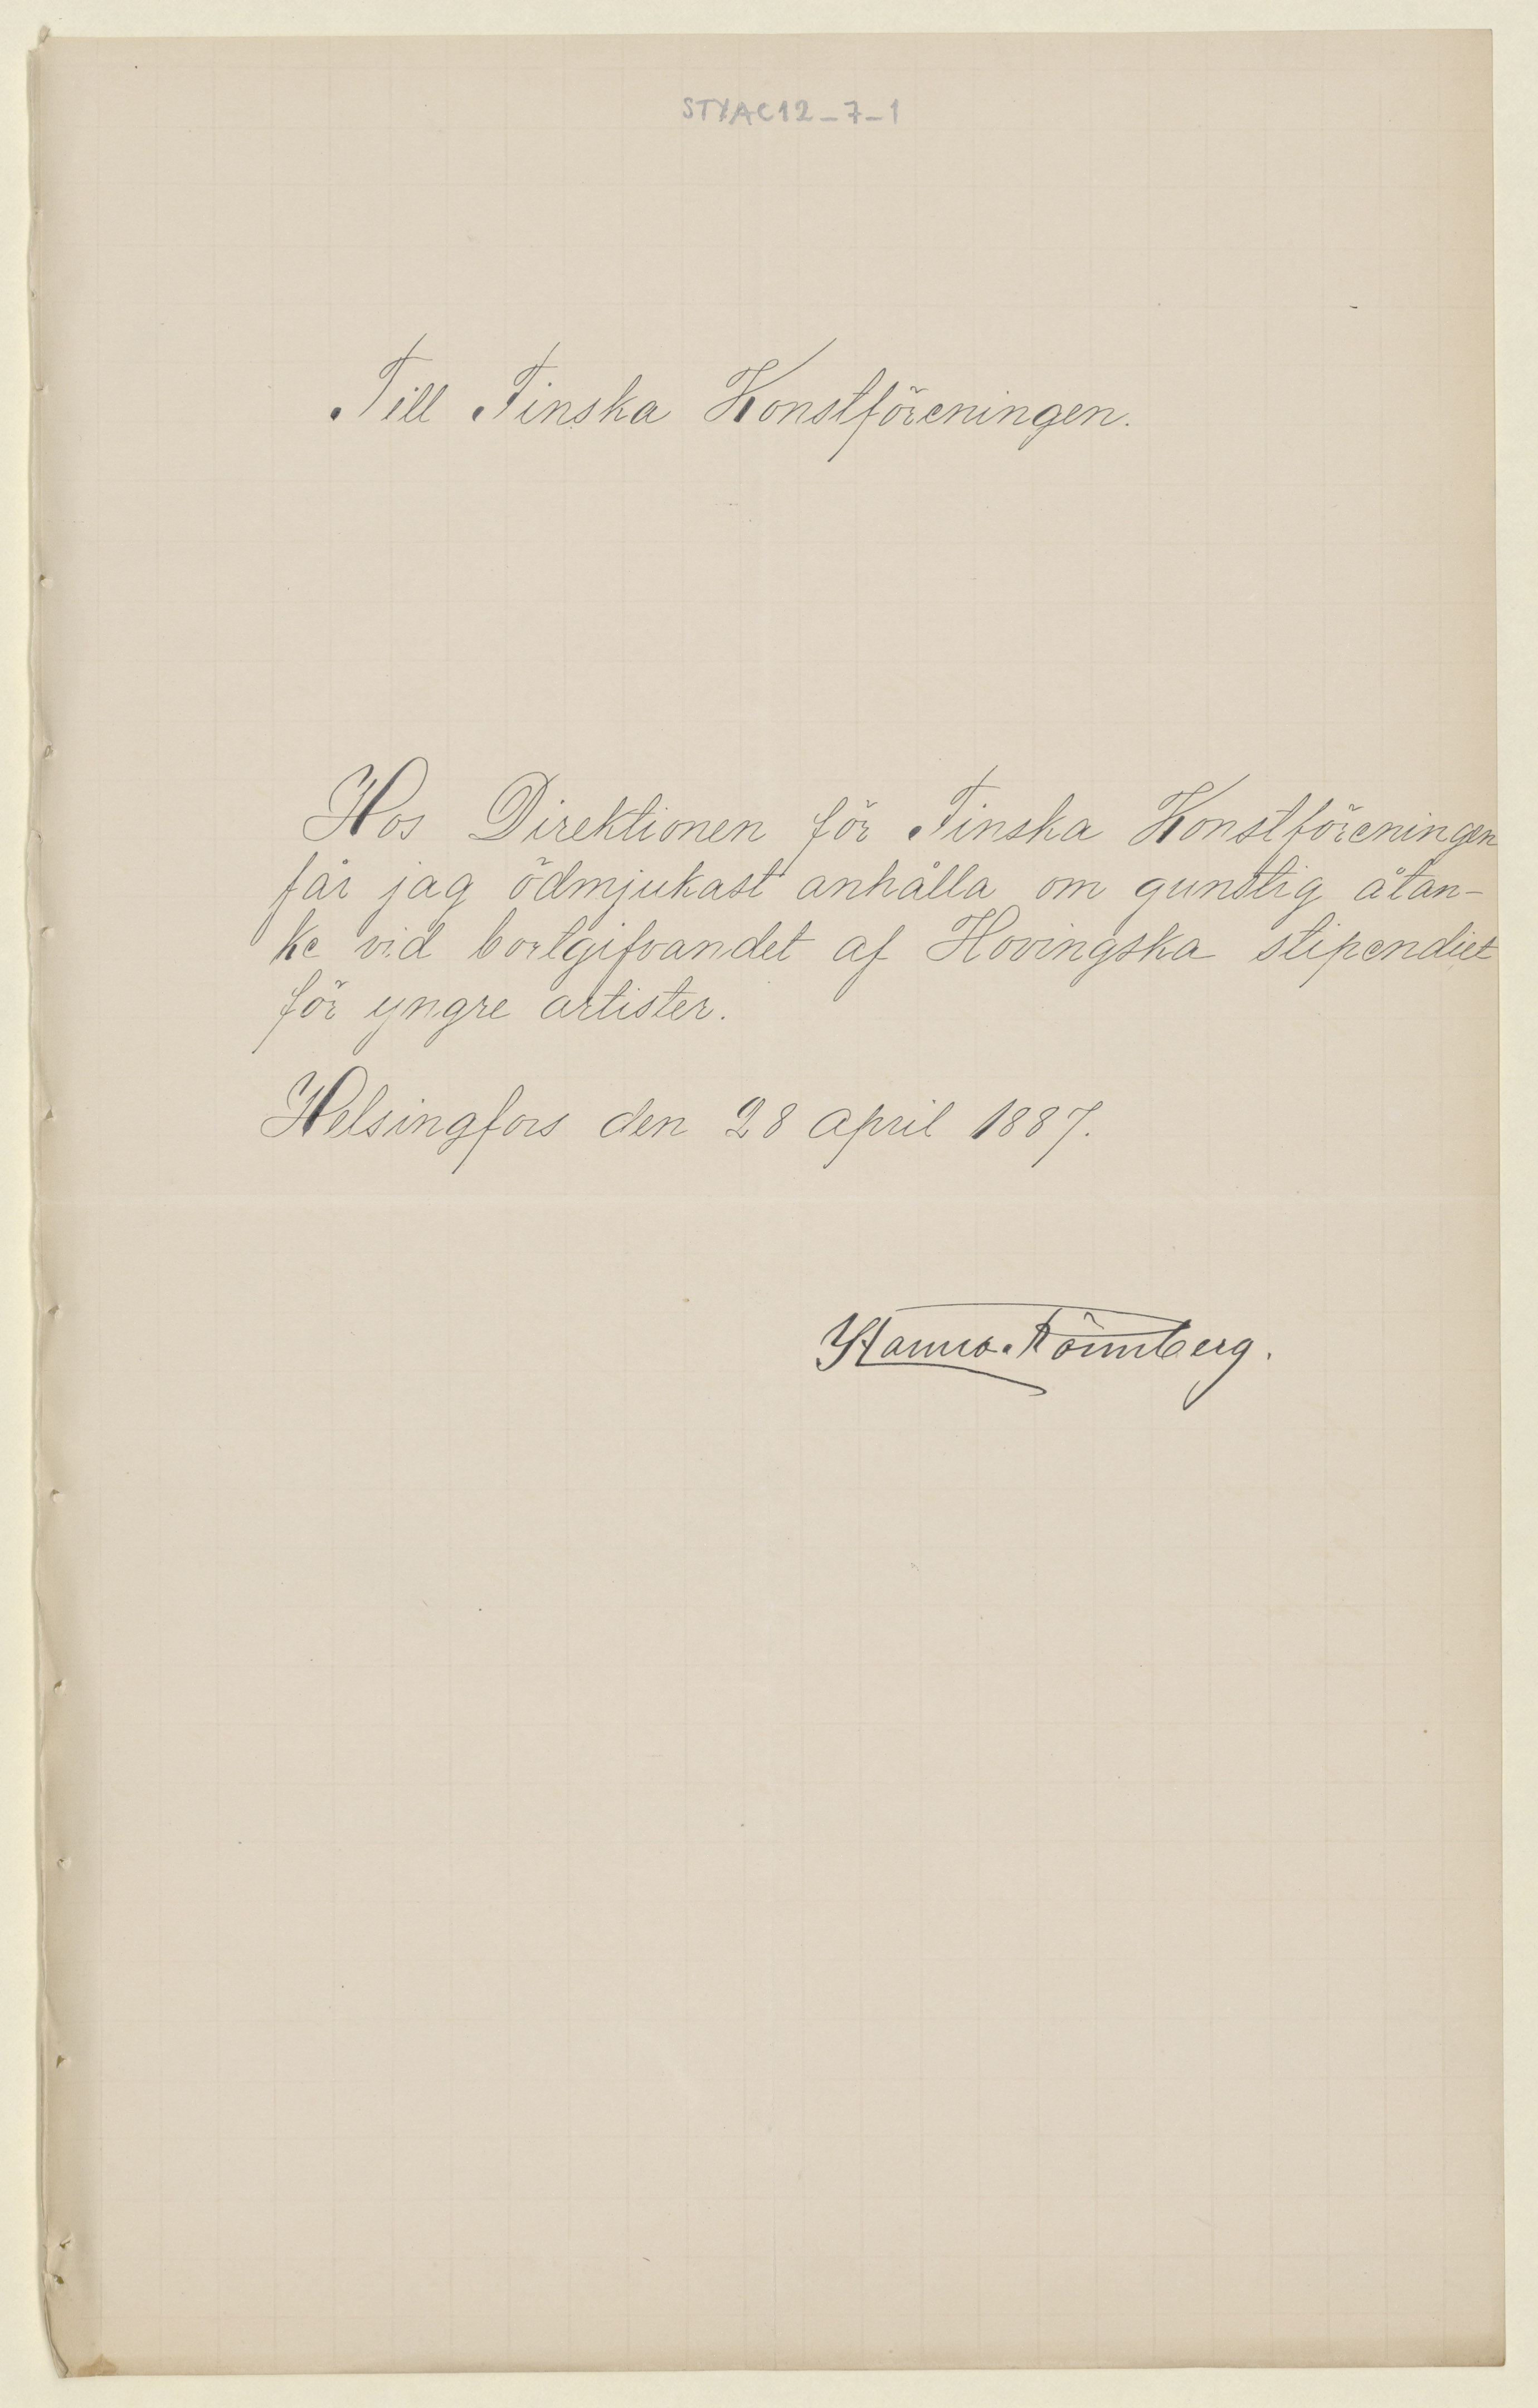 STYAC12_7_1
Till Finska Konstföreningen.
Hos Direktionen för Finska Konstföreningen
får jag ödmjukast anhålla om gunstig åtan-
ke vid bortgifvandet af Hovingska stipendiet
för yngre artister.
Helsingfors den 28 april 1887.
Hanna Rönnberg.